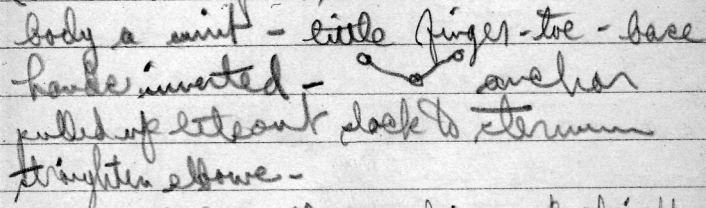 body a unit - little finger-toe-base
hands inverted - anchor
pulled up let out slack to sternum
straighten elbows -